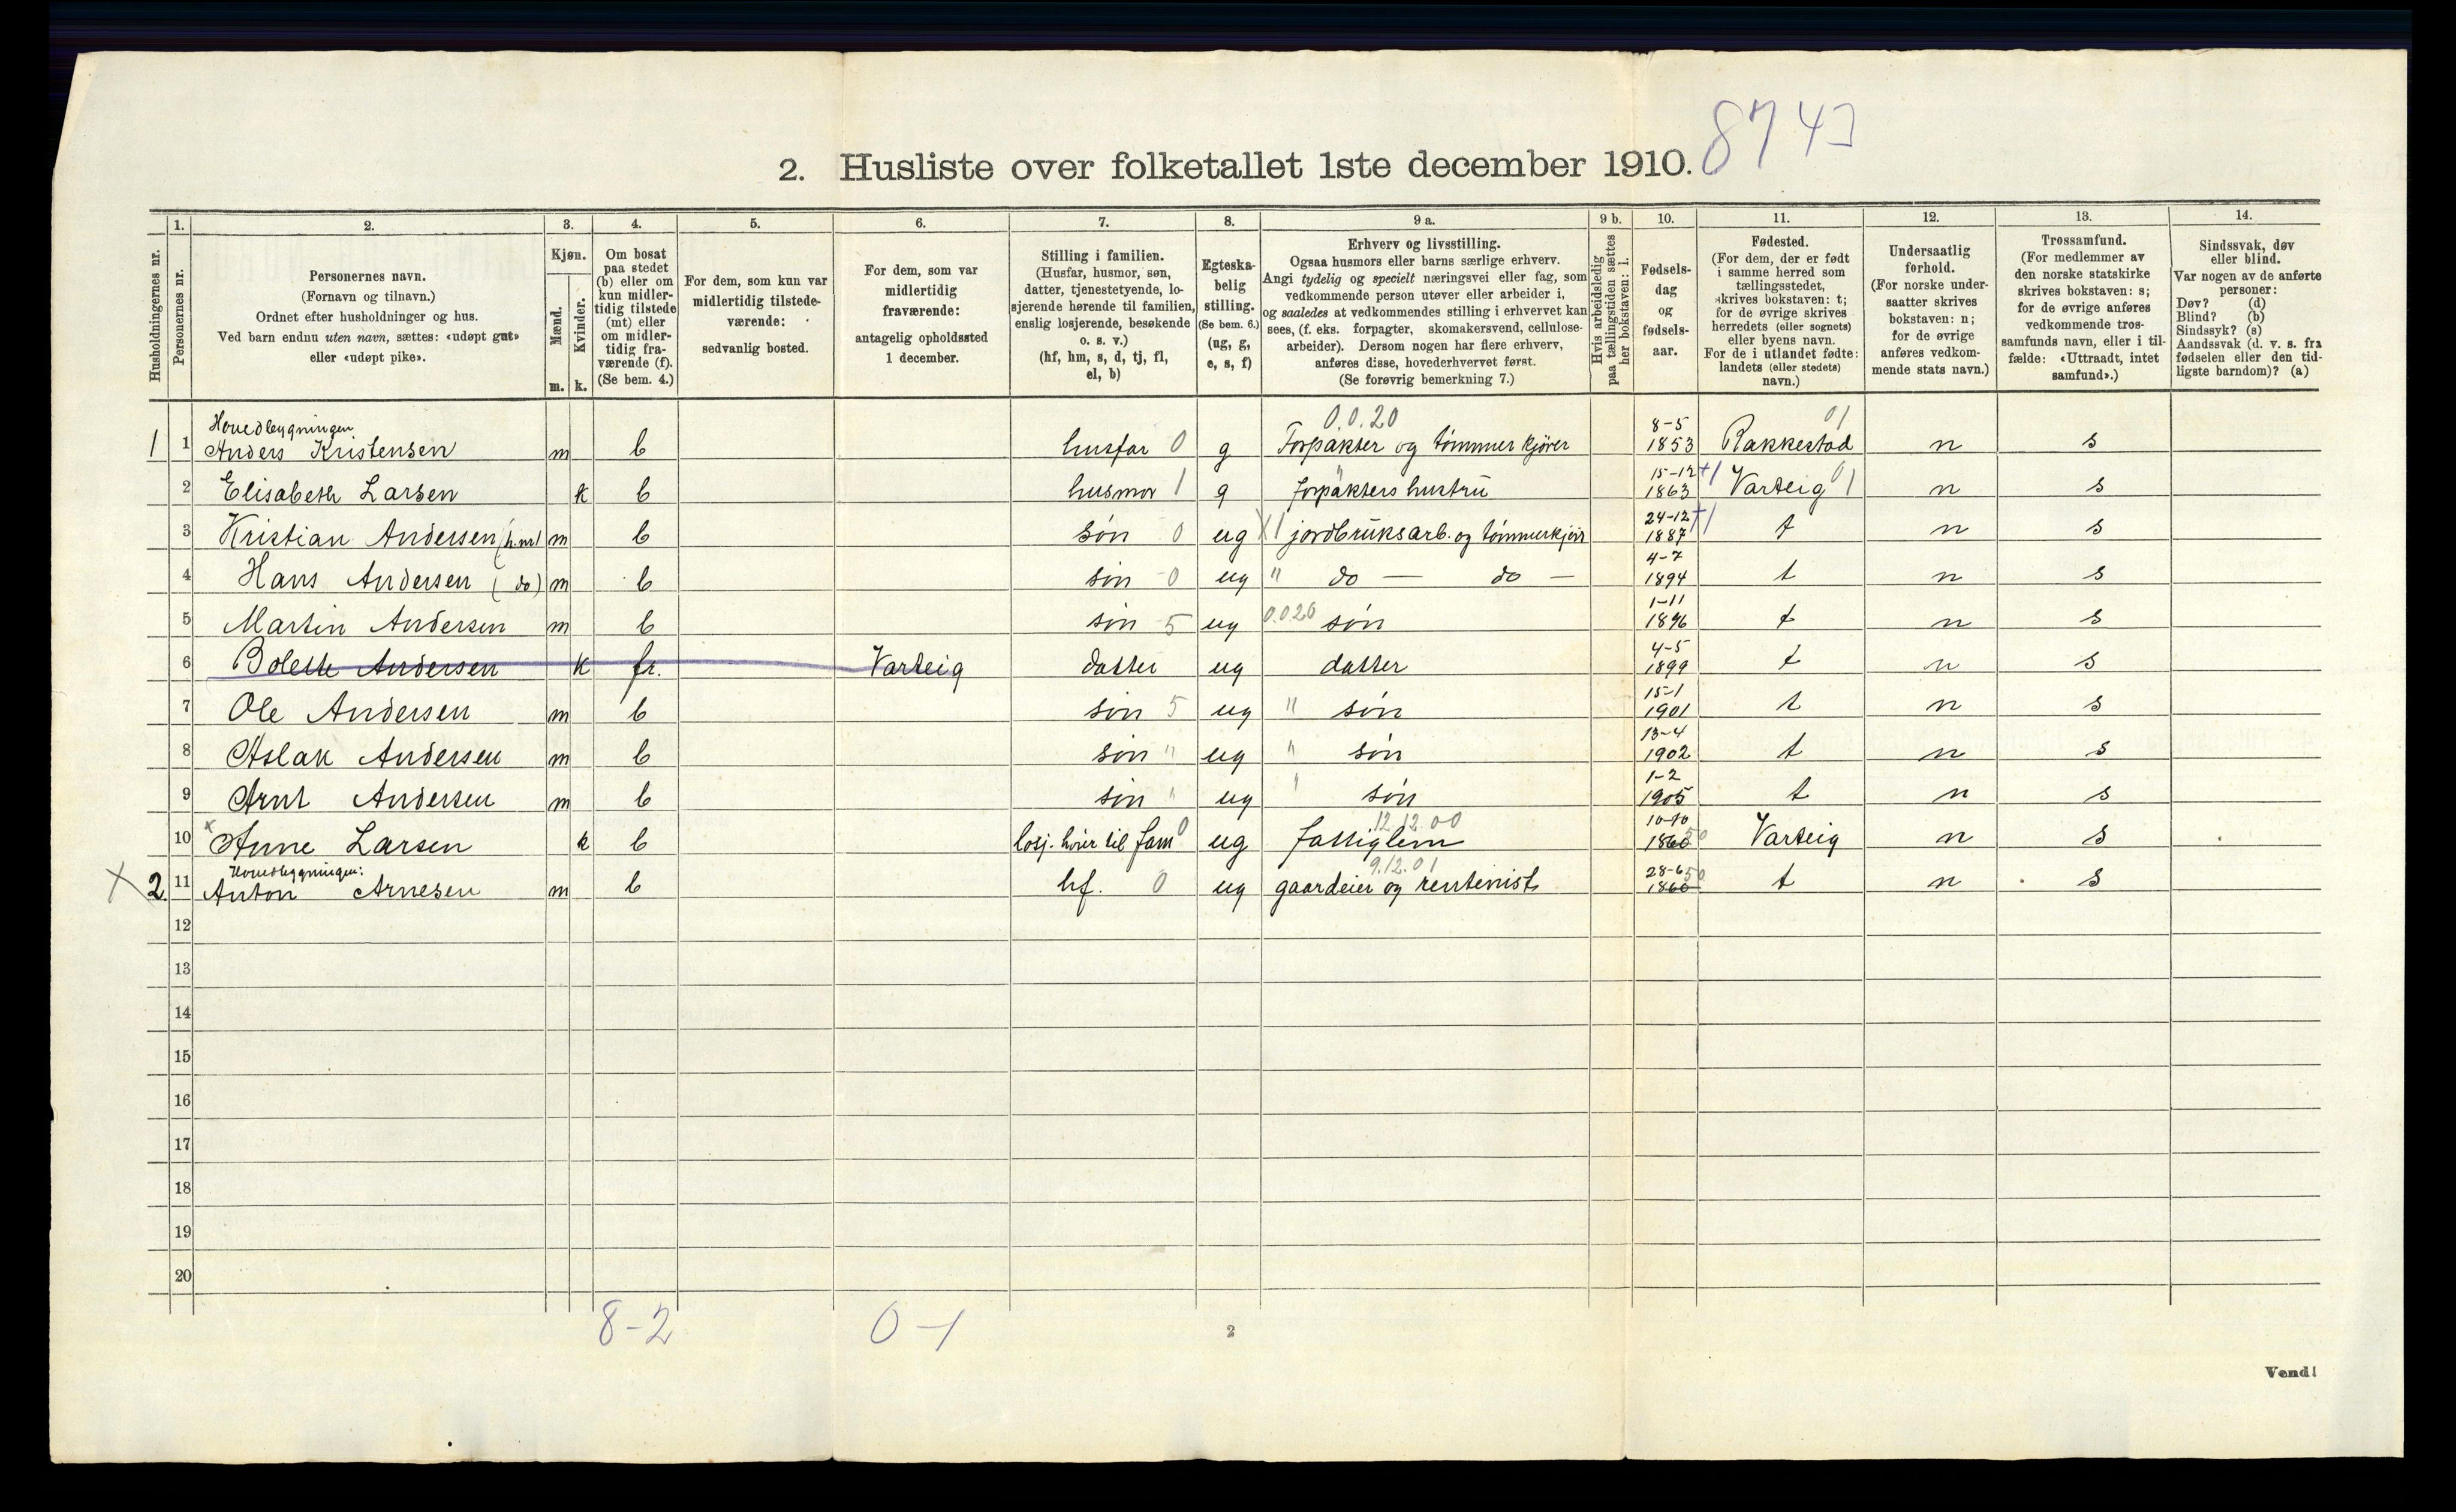 2. Husliste over folketallet 1ste december 1910. 8743
Husholdningernes nr.
1.
Personernes nr.
2.
Personernes navn.
(Fornavn og tilnavn.)
Ordnet efter husholdninger og hus.
Ved barn endnu uten navn, sættes: «udøpt gut»
eller «udøpt pike».
3.
Kjøn.
Mænd.
Kvinder.
m. k.
4.
Om bosat
paa stedet
(b) eller om
kun midler-
tidig tilstede
(mt) eller
om midler-
tidig fra-
værende (f).
(Se bem. 4.)
5.
For dem, som kun var
midlertidig tilstede-
værende:
sedvanlig bosted.
6.
For dem, som var
midlertidig
fraværende:
antagelig opholdssted
1 december.
7.
Stilling i familien.
(Husfar, husmor, søn,
datter, tjenestetyende, lo-
sjerende hørende til familien,
enslig losjerende, besøkende
o. s. v.)
(hf, hm, s, d, tj, fl,
el, b)
8.
Egteska-
belig
stilling.
(Se bem. 6.)
(ug, g,
e, s, f)
9 a.
Erhverv og livsstilling.
Ogsaa husmors eller barns særlige erhverv.
Angi tydelig og specielt næringsvei eller fag, som
vedkommende person utøver eller arbeider i,
og saaledes at vedkommendes stilling i erhvervet kan
sees, (f. eks. forpagter, skomakersvend, cellulose-
arbeider). Dersom nogen har flere erhverv,
anføres disse, hovederhvervet først.
(Se forøvrig bemerkning 7.)
9 b.
Hvis arbeidsledig
paa tællingstiden sættes
her bokstaven: l.
10.
Fødsels-
dag
og
fødsels-
aar.
11.
Fødested.
(For dem, der er født
i samme herred som
tællingsstedet,
skrives bokstaven: t;
for de øvrige skrives
herredets (eller sognets)
eller byens navn.
For de i utlandet fødte:
landets (eller stedets)
navn.)
12.
Undersaatlig
forhold.
(For norske under-
saatter skrives
bokstaven: n;
for de øvrige
anføres vedkom-
mende stats navn.)
13.
Trossamfund.
(For medlemmer av
den norske statskirke
skrives bokstaven: s;
for de øvrige anføres
vedkommende tros-
samfunds navn, eller i til-
fælde: «Uttraadt, intet
samfund».)
14.
Sindssvak, døv
eller blind.
Var nogen av de anførte
personer:
Døv? (d)
Blind? (b)
Sindssyk? (s)
Aandssvak (d. v. s. fra
fødselen eller den tid-
ligste barndom)? (a)
Hovedbygningen 0.0.20 8-5 01
1 1 Anders Kristensen m b husfar 0 g Forpakter og tømmerkjører 1853 Rakkestad n s
15-12 +1 01
2 Elisabeth Larsen k b husmor 1 g forpakters hustru 1863 Varteig n s
24-12 +1
3 Kristian Andersen (h.nr1 m b søn 0 ug X1 jordbruksarb. og tømmerkjører 1887 t n s
4-7
4 Hans Andersen (do) m b søn 0 ug " do — do — 1894 t n s
1-11
5 Martin Andersen m b søn 5 ug 0.020 søn 1896 t n s
4-5
6 Boleth Andersen k fr. Varteig datter ug datter 1899 t n s
15-1
7 Ole Andersen m b søn 5 ug " søn 1901 t n s
13-4
8 Aslak Andersen m b søn " ug " søn 1902 t n s
1-2
9 Arnt Andersen m b søn " ug " søn 1905 t n s
x 12.12.00 10-10
10 Anne Larsen k b losj. hører til fam 0 ug fattiglem 1860 50 Varteig n s
Hovedbygningen: 9.12.01 28-6
X 2. 11 Anton Arnesen m b hf. 0 ug gaardeier og rentenist 1860 50 t n s
12
13
14
15
16
17
18
19
20
8-2 0-1
2
Vend!